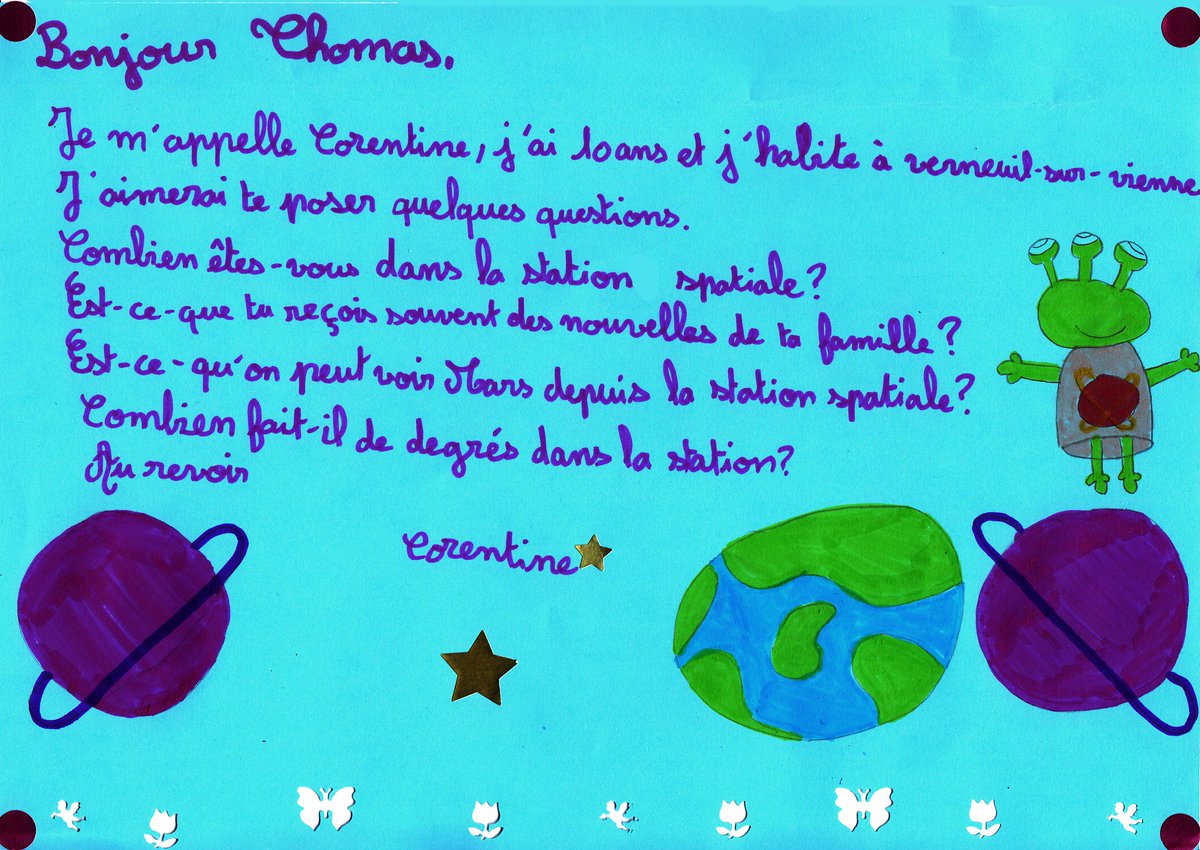 Bonjour Thomas.
Je m'appelle Corentine, j'ai 10 ans et j'habite à verneuil-sur-vienne
J'aimerai te poser quelques questions.
Combien êtes-vous dans la station spatiale?
Est-ce-que tu reçois souvent des nouvelles de ta famille?
Est-ce-qu'on peut voir Mars depuis la station spatiale?
Combien fait-il de degrés dans la station?
Au revoir
Corentine